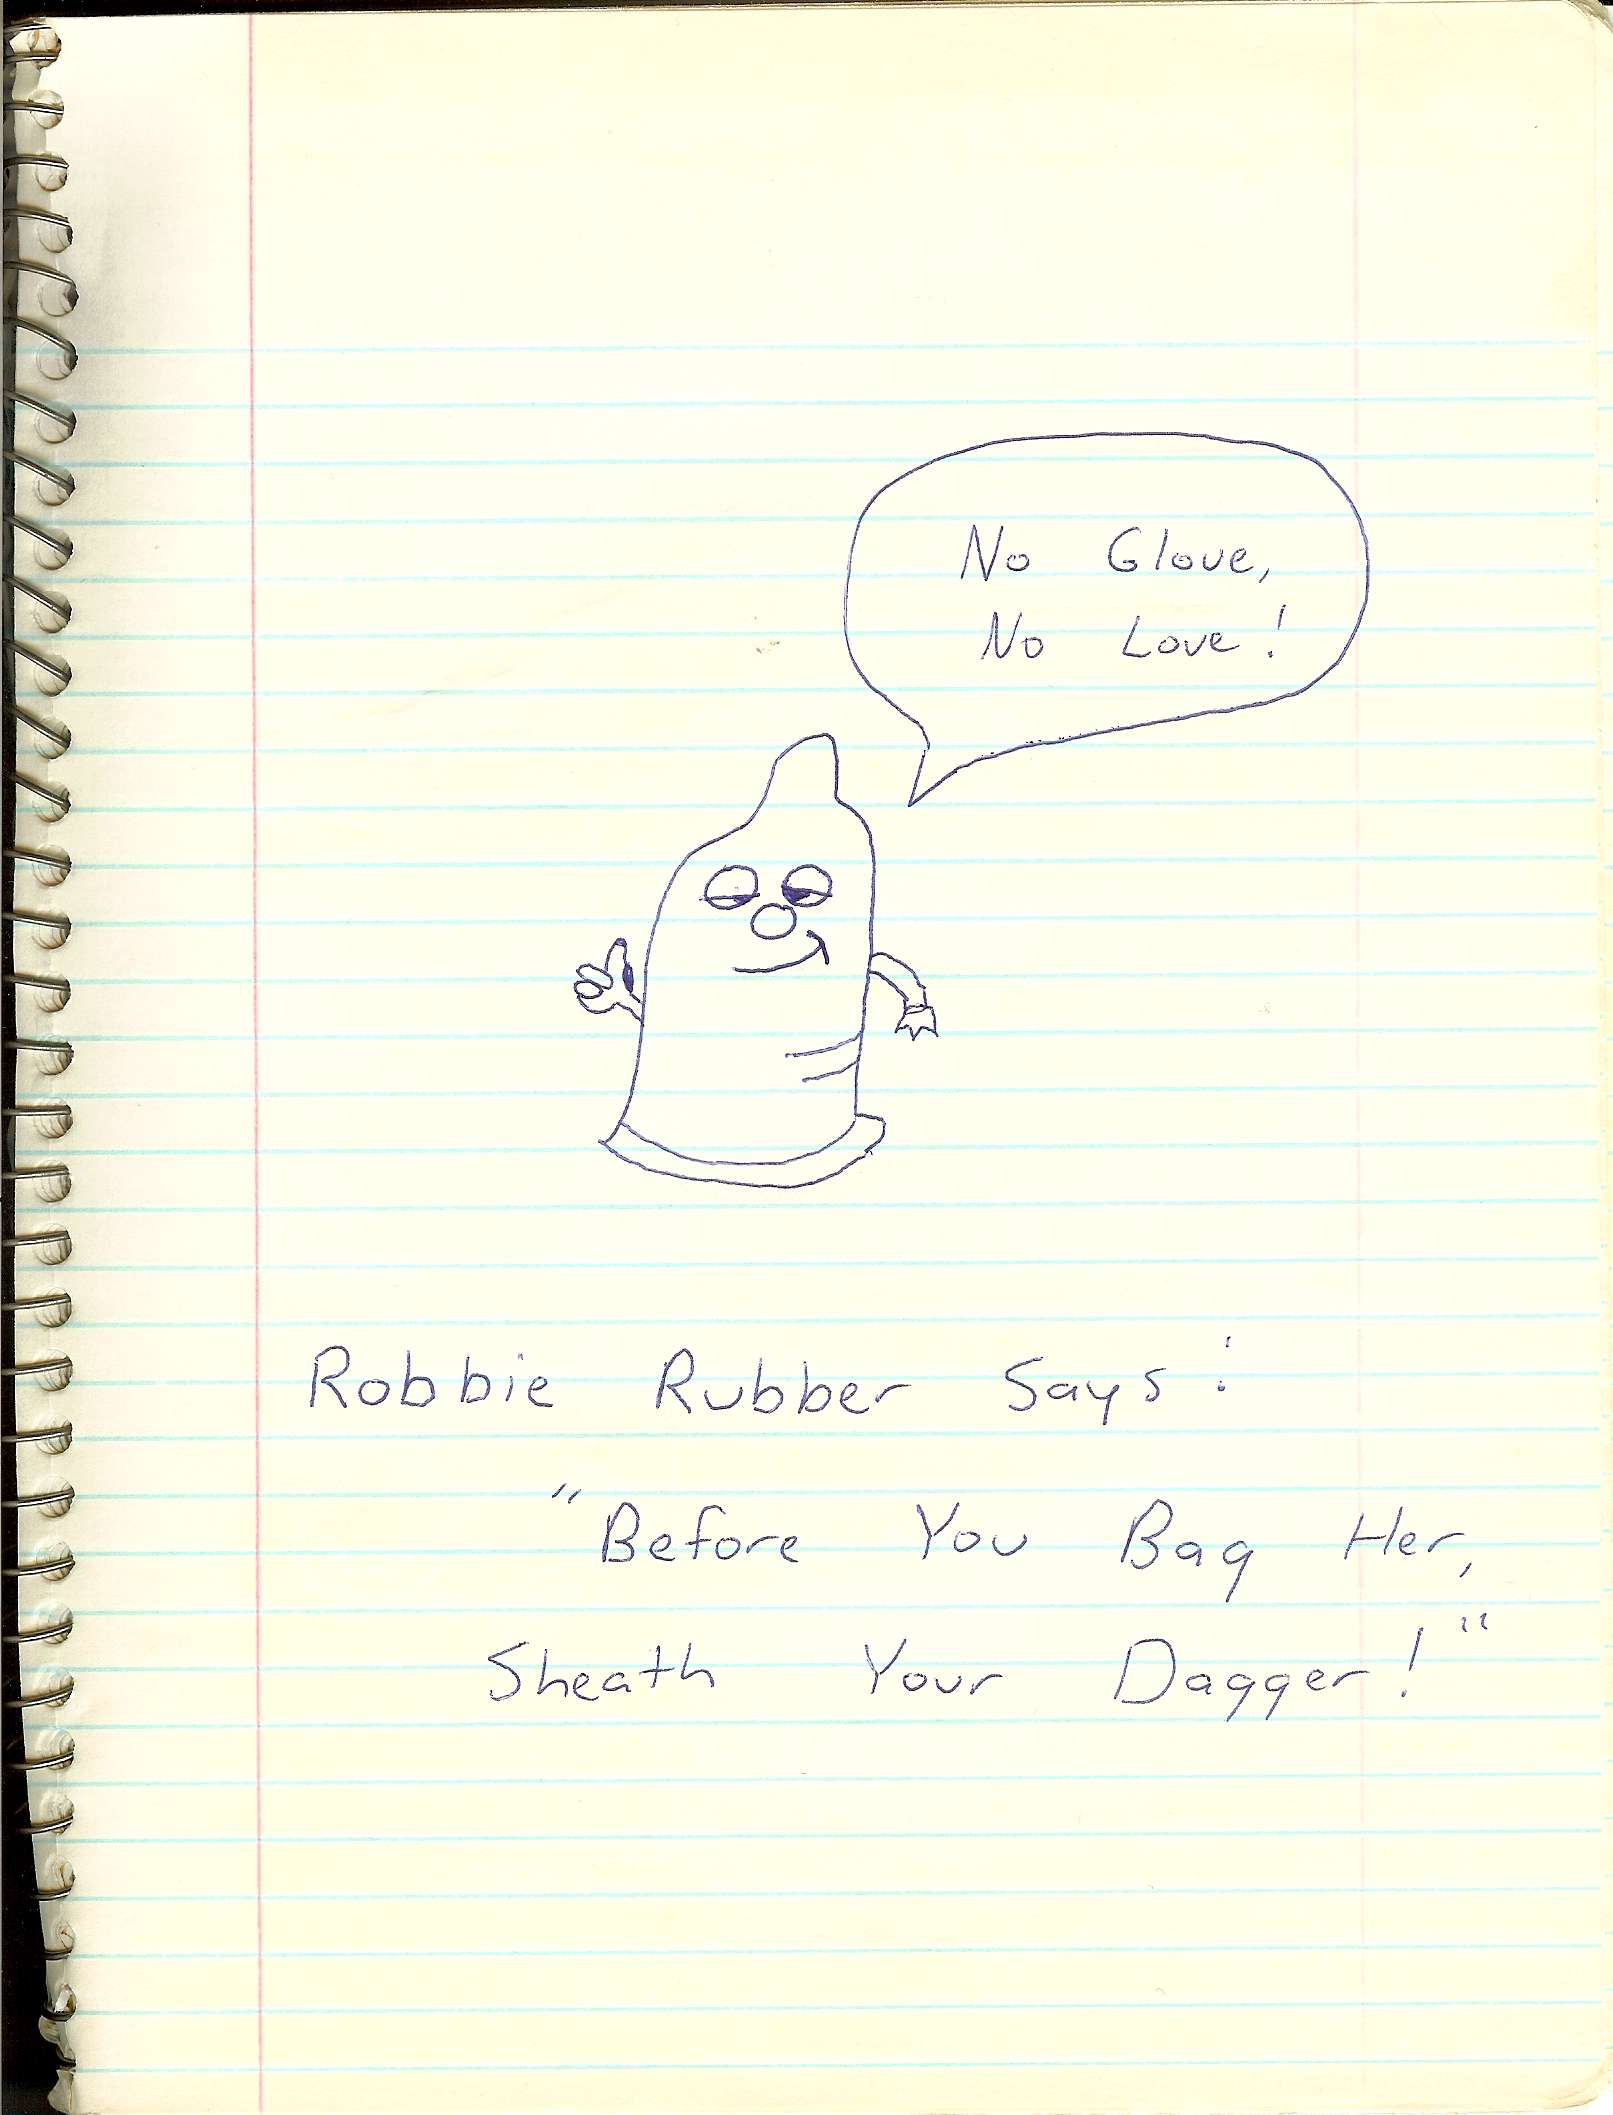 No Glove,
No Love!
Robbie Rubber Says:
"Before You Bag Her,
Sheath Your Dagger!"